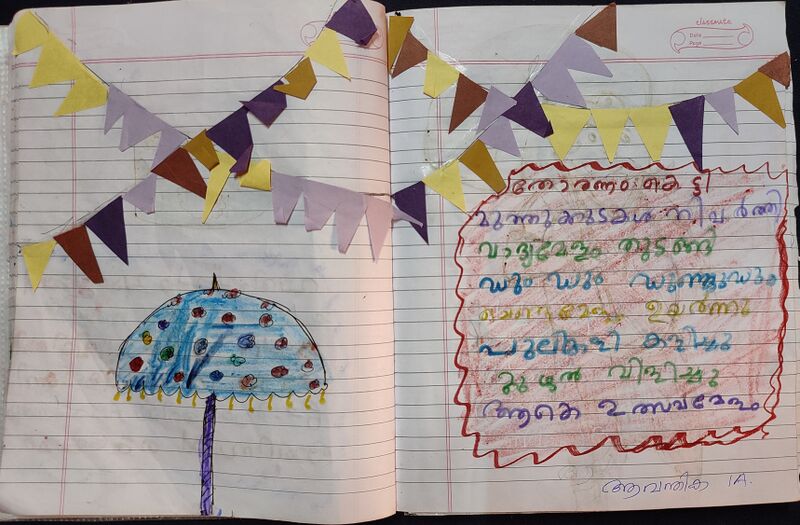 classmate
Date
Page
തോരണം കെട്ടി
മുത്തുക്കുടകൾ നിവർത്തി
വാദ്യമേളം തുടങ്ങി
ഡും ഡും
ചെണ്ടമേളം ഉയർന്നു
പുലികളി കളിച്ചു
കുഴൽ വിളിച്ചു
ആകെ ഉത്സവമേളം
ആവന്തിക 1A.